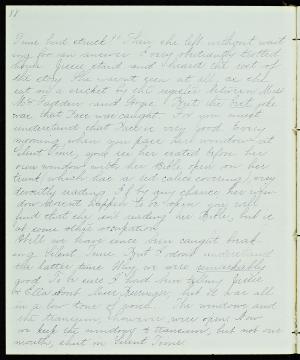 11
Time had struck!" Then she left without wait
ing for an answer. Every obediently trotted
home. Jessie stood and heard the rest of
the day. She wasn't seen at all, as she
sat on a cricket by the register between Miss
McFadden and Angie. But the best joke
was that Tree was caught. For you must
understand that Tree is very good. Every
morning when you pass her window at
Silent Time, you'd see her seated before her
own window with her Bible open on her
trunk (which has a red calico covering) very
devoutly reading. If by any chance her win
dow doesn't happen to be open you will
find that she isn't reading her Bible, but is
at some other occupation.
Well we have since been caught break
ing Silent Time. But I don't understand
the latter time. Why we were
good. To be sure I had been telling Jessie
& Ella about, but it was all
in a low tone of voice. The windows and
the transom, however were open. Now
we keep the windows & transom, but not one
mouth, shut in Silent Time.